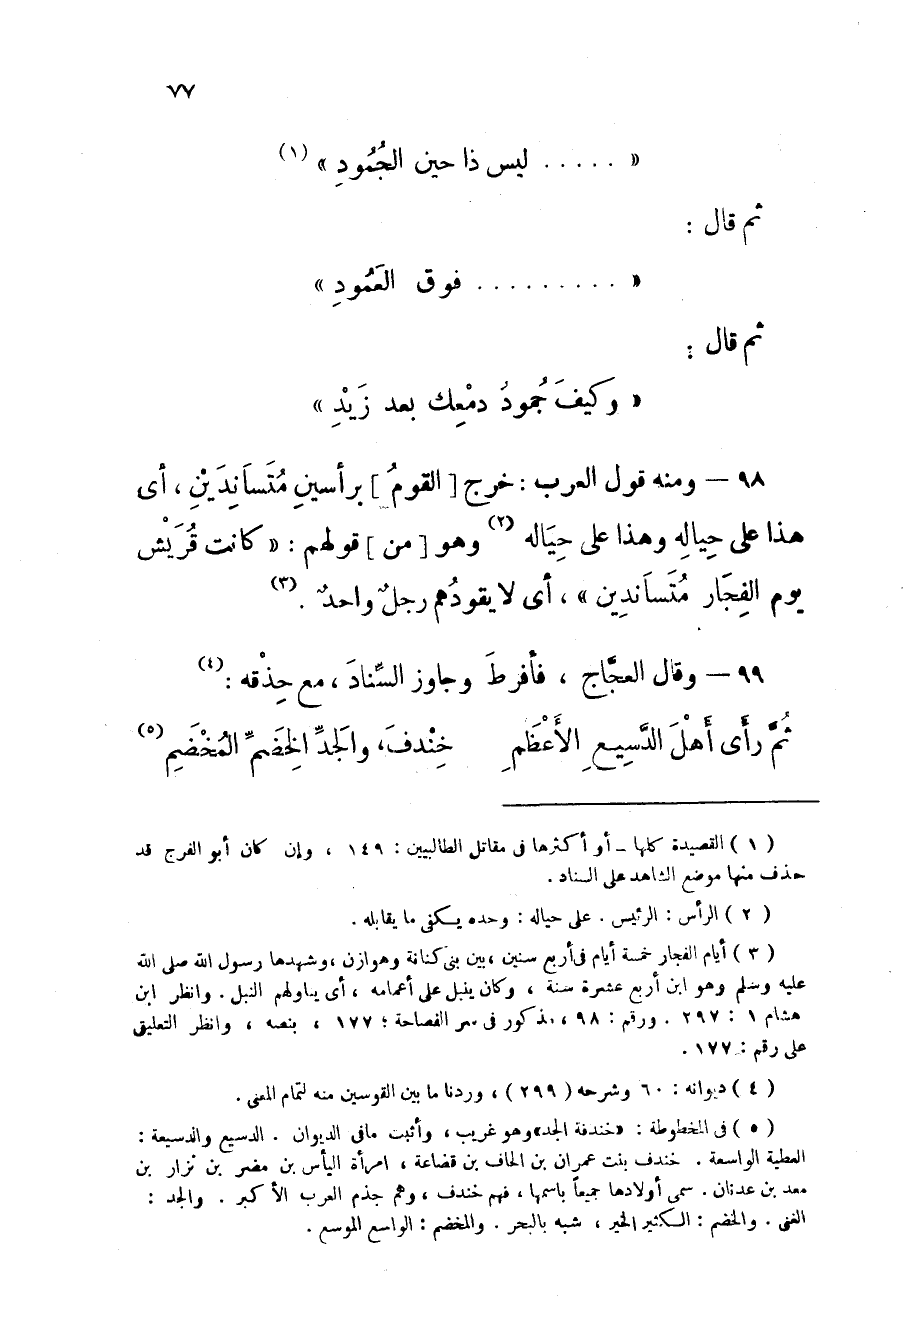 ٧٧
« ..... ليس ذا حين الجُمُودِ » (١)
ثم قال :
« ......... فوق العَمُودِ »
ثم قال :
« وَكَيفَ جُمودُ دمْعِك بعد زَيْدِ »
٩٨ — ومنه قول العرب : خرج [ القومُ ] برأسينِ مُتَسانِدَيْنِ ، أى
هذا على حِيالِه وهذا على حِيَاله (٢) وهو [ من ] قولهم : « كانت قُرَيْش
يوم الفِجَار مُتَسانِدِين » ، أى لا يقودُهم رجلٌ واحدٌ . (٣)
٩٩ — وقال العجَّاج ، فأفرطَ وجاوز السِّنادَ ، مع حِذْقه : (٤)
ثُمَّ رأَى أَهْلَ الدَّسِيعِ الأَعْظَمِ خِنْدفَ، والجدِّ الخِضَمِّ المُخْضَمِ (٥)
( ١ ) القصيدة كلها — أو أكثرها فى مقاتل الطالبيين : ١٤٩ ، وإن كان أبو الفرج قد
حذف منها موضع الشاهد على السناد .
( ٢ ) الرأس : الرئيس . على حياله : وحده يكفى ما يقابله .
( ٣ ) أيام الفجار خمسة أيام فى أربع سنين ، بين بنى كنانة وهوازن ، وشهدها رسول الله صلى الله
عليه وسلم وهو ابن أربع عشرة سنة ، وكان ينبل على أعمامه ، أى يناولهم النبل . وانظر ابن
هشام ١ : ٢٩٧ . ورقم : ٩٨ ، مذكور فى سر الفصاحة : ١٧٧ ، بنصه ، وانظر التعليق
على رقم : ١٧٧ .
( ٤ ) ديوانه : ٦٠ وشرحه ( ٢٩٩ ) ، وردنا ما بين القوسين منه لتمام المعنى .
( ٥ ) فى المخطوطة : «خندفة الجد» وهو غريب ، وأثبت مافى الديوان . الدسيع والدسيعة :
العطية الواسعة . خندف بنت عمران بن الحاف بن قضاعة ، امرأة اليأس بن مضر بن نزار بن
معد بن عدنان . سمى أولادها جميعاً باسمها ، فهم خندف ، وهم جذم العرب الأكبر . والجد :
الغنى . والخضم : الكثير الخير ، شبه بالبحر . والمخضم : الواسع الموسع .